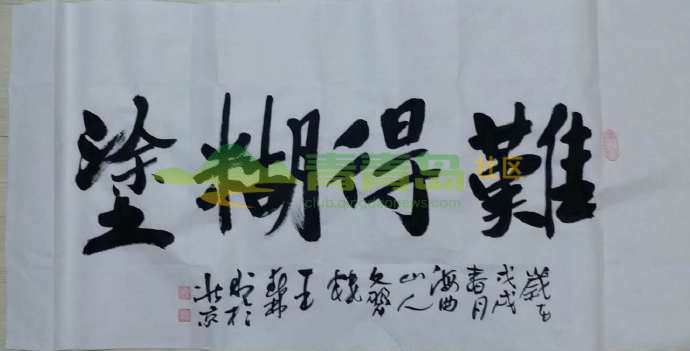 難得糊塗
歲在
戊戌
春月
海曲
山人
王
於
北京
青青岛社区
club.qingdaonews.com